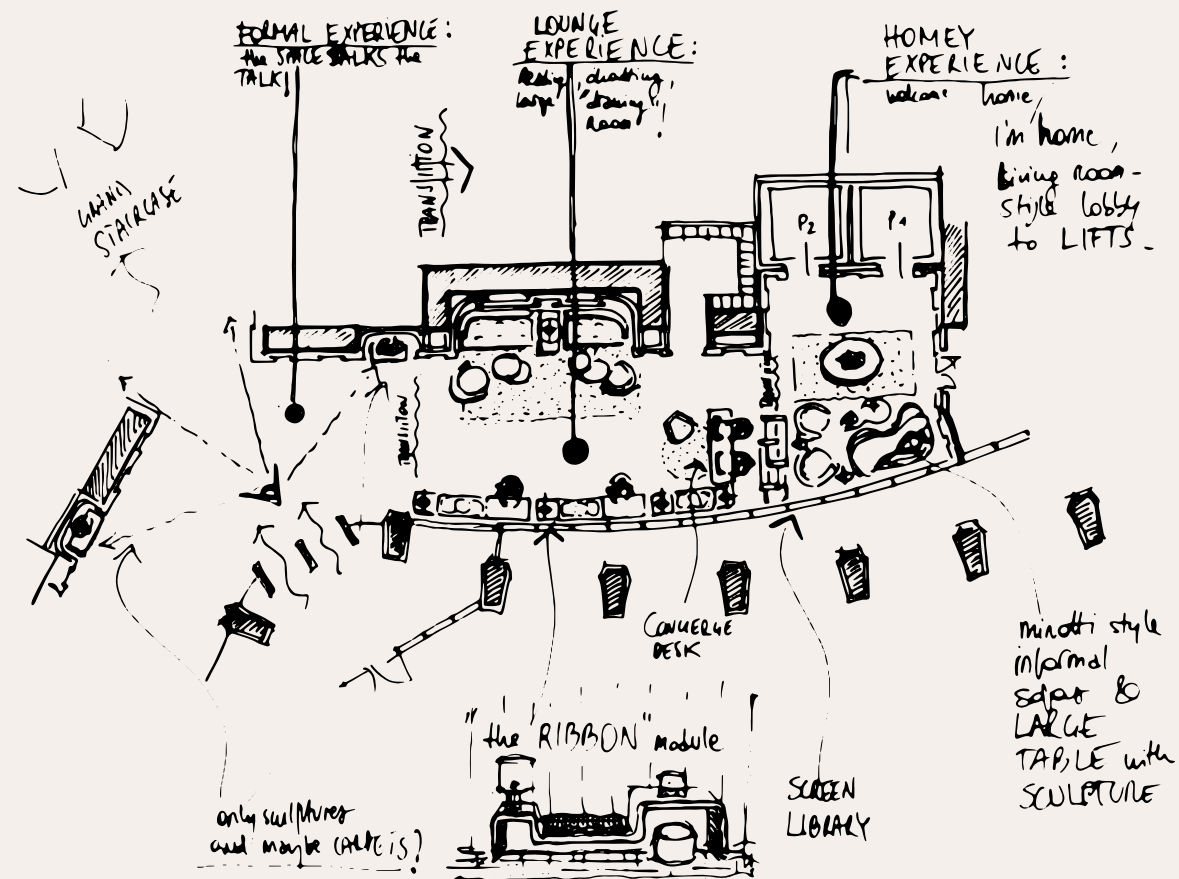 FORMAL EXPERIENCE:
the SPACE TALKS the
TALK!
LOUNGE
EXPERIENCE:
chatting,
large "drawing"
Room!
HOMEY
EXPERIENCE:
welcome home,
i'm home,
living room-
style lobby
to LIFTS-
TRANSITION
STAIRCASE
P2
P1
TRANSITION
CONCIERGE
DESK
"the "RIBBON" module
SCREEN
LIBRARY
minotti style
informal
sofas &
LARGE
TABLE with
SCULPTURE
only sculptures
and maybe